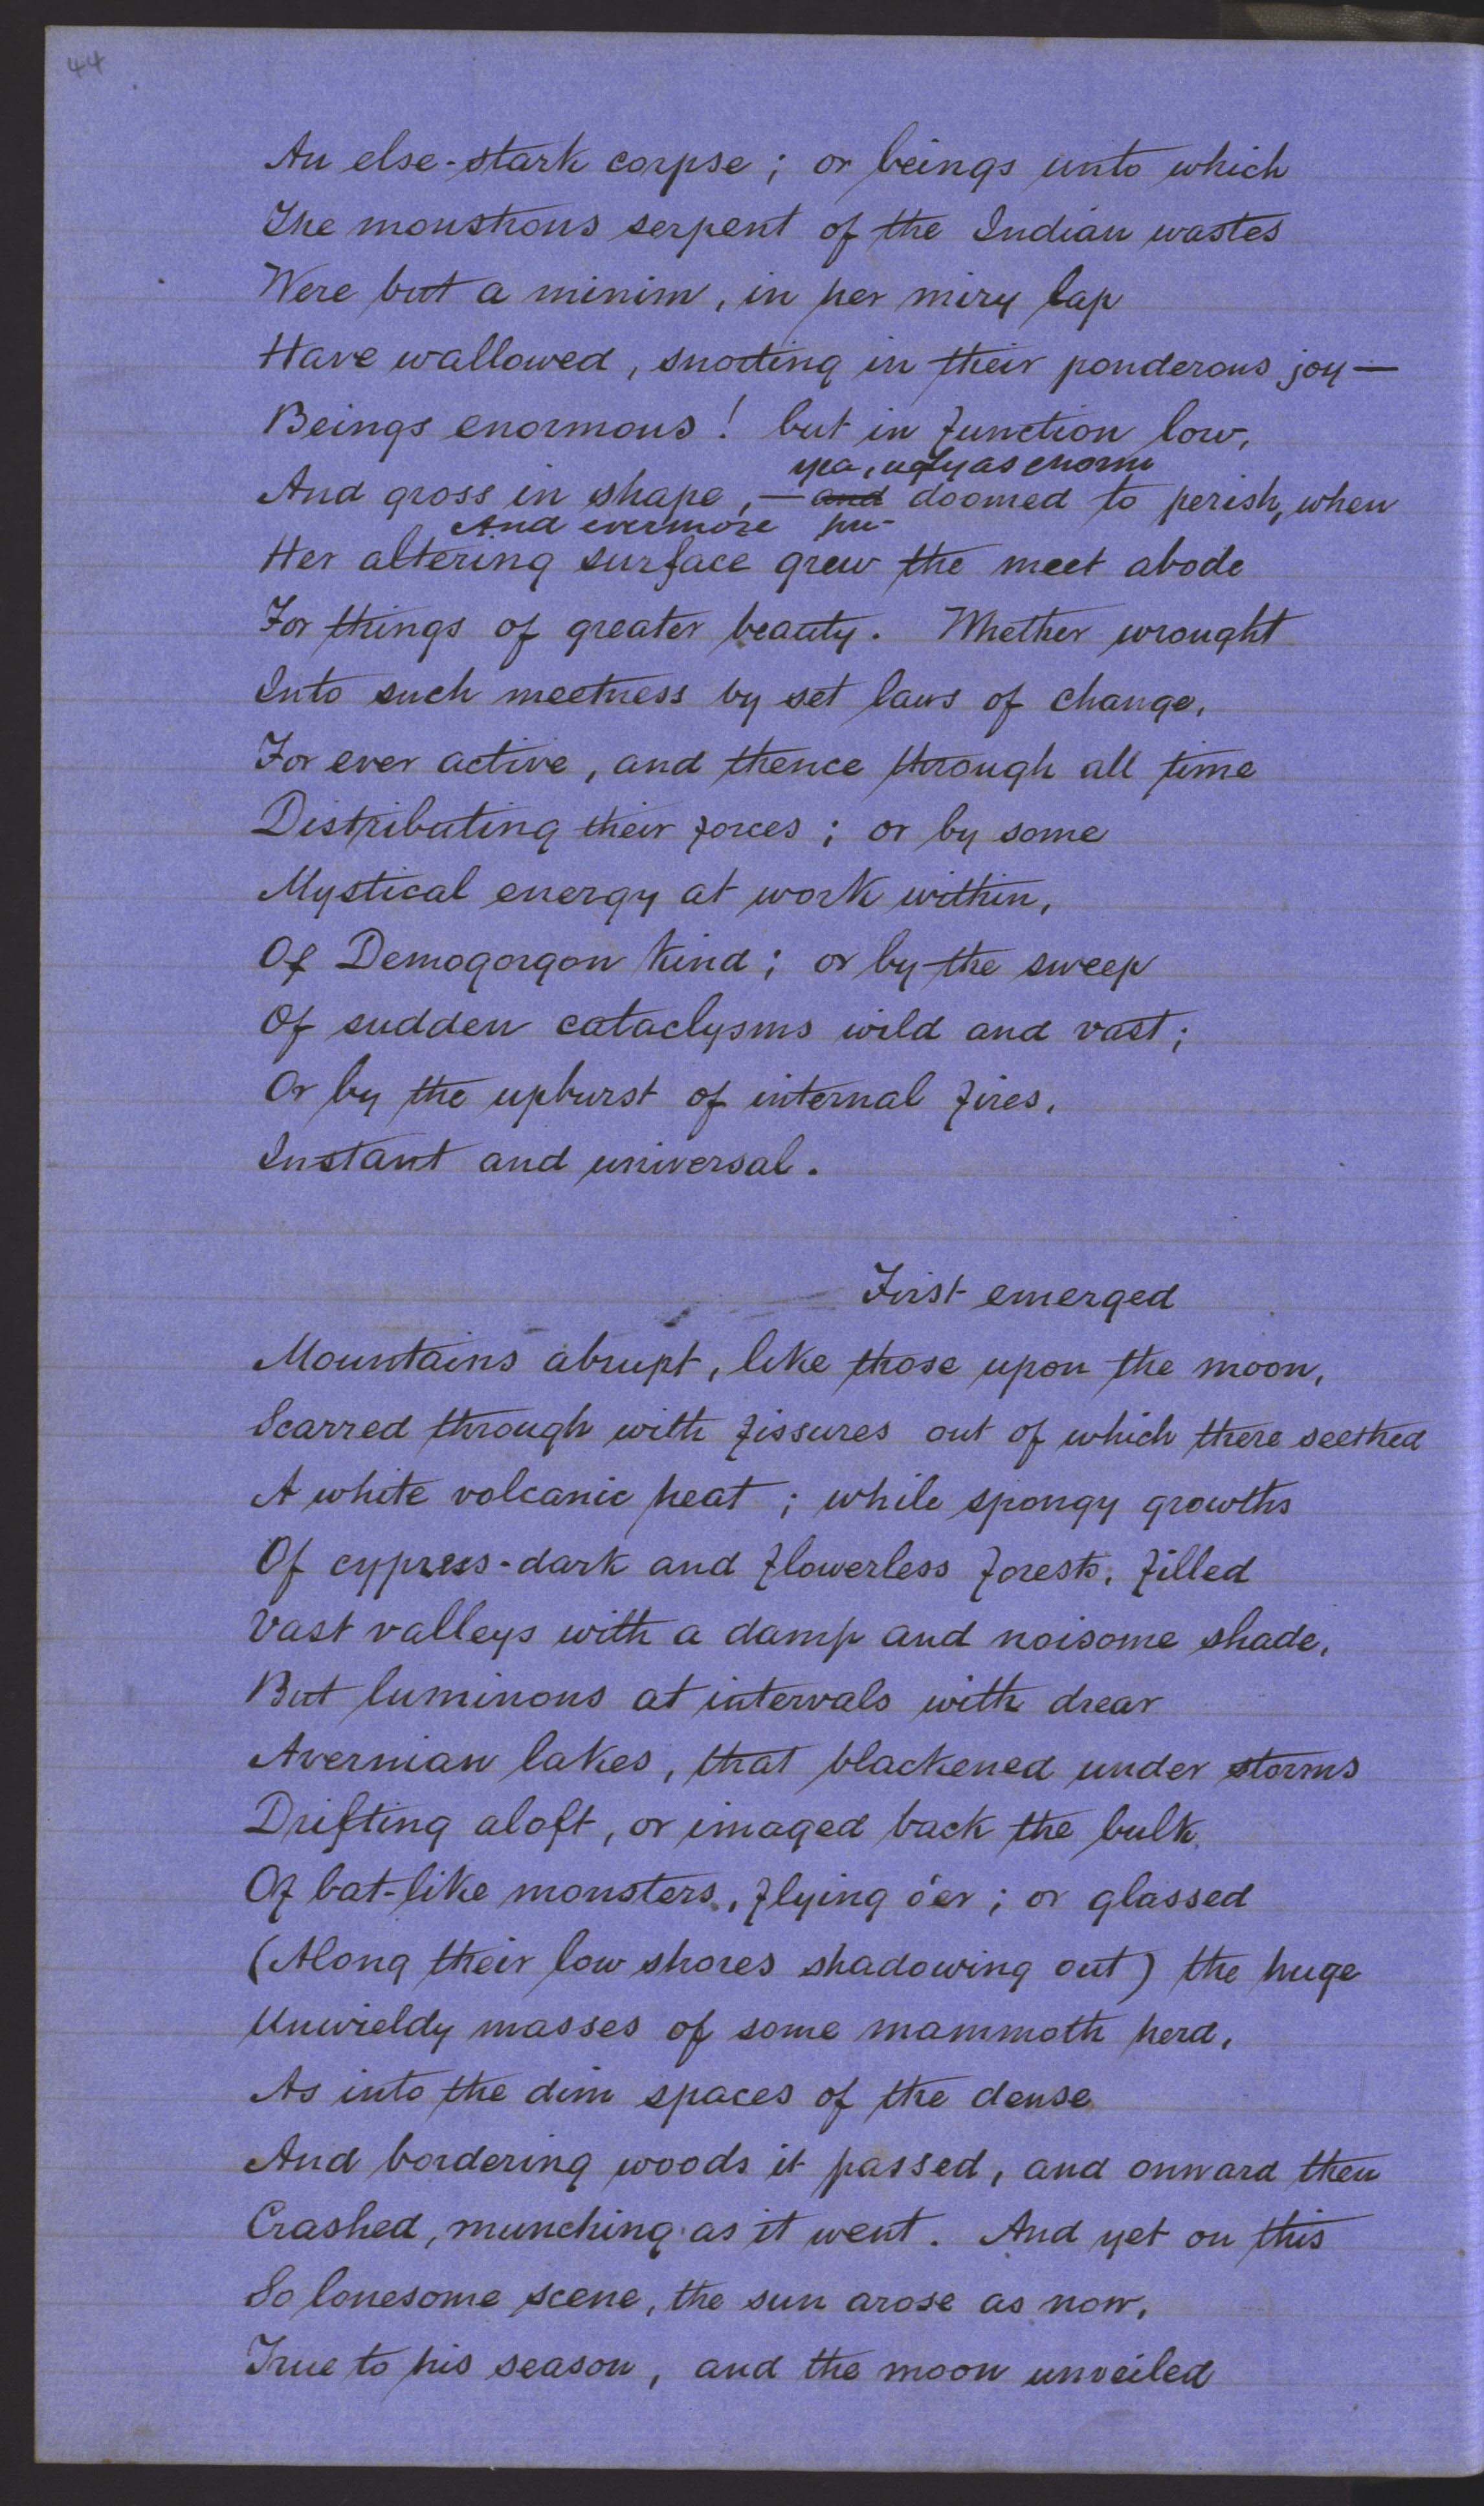 44
An else-stark corpse; or beings unto which
The monstrous serpent of the Indian wastes
Were but a minim, in her miry lap
Have wallowed, snorting in their ponderous joy—
Beings enormous! but in function low,
yea, ugly as enorm
And gross in shape,—and doomed to perish, when
And evermore
Her altering surface grew the meet abode
For things of greater beauty. Whether wrought
Into such meetness by set laws of change,
For ever active, and thence through all time
Distributing their forces; or by some
Mystical energy at work within,
Of Demogorgon kind; or by the sweep
Of sudden cataclysms wild and vast;
Or by the upburst of internal fires,
Instant and universal.
First emerged
Mountains abrupt, like those upon the moon,
Scarred through with fissures out of which there seethed
A white volcanic heat; while spongy growths
Of cypress-dark and flowerless forests, filled
Vast valleys with a damp and noisome shade,
But luminous at intervals with drear
Avernian lakes, that blackened under storms
Drifting aloft, or imaged back the bulk
Of bat-like monsters, flying o'er; or glassed
(Along their low shores shadowing out) the huge
Unwieldy masses of some mammoth herd,
As into the dim spaces of the dense
And bordering woods it passed, and onward then
Crashed, munching as it went. And yet on this
So lonesome scene, the sun arose as now,
True to his season, and the moon unveiled